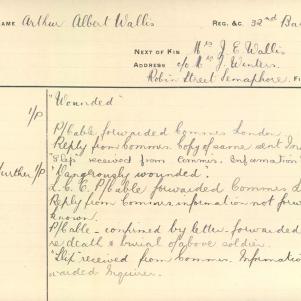 NAME Arthur Albert Wallis REG. &C. 32nd Ba
NEXT OF KIN Mrs J. E. Wallis
ADDRESS c/o Mrs J. Winters.
Robin Street Semaphore. F
I/P "Wounded"
P/Cable forwarded Commrs London
Reply from Commrs. Copy of same sent In
"Slip" received from Commrs. Information
Further I/P "Dangerously wounded".
L.C.C. P/Cable forwarded Commrs L
Reply from Commrs information not forw
known.
P/Cable - confirmed by letter forwarded
re death & burial of above soldier.
"Slip" received from Commr. Informatio
warded Inquirer.